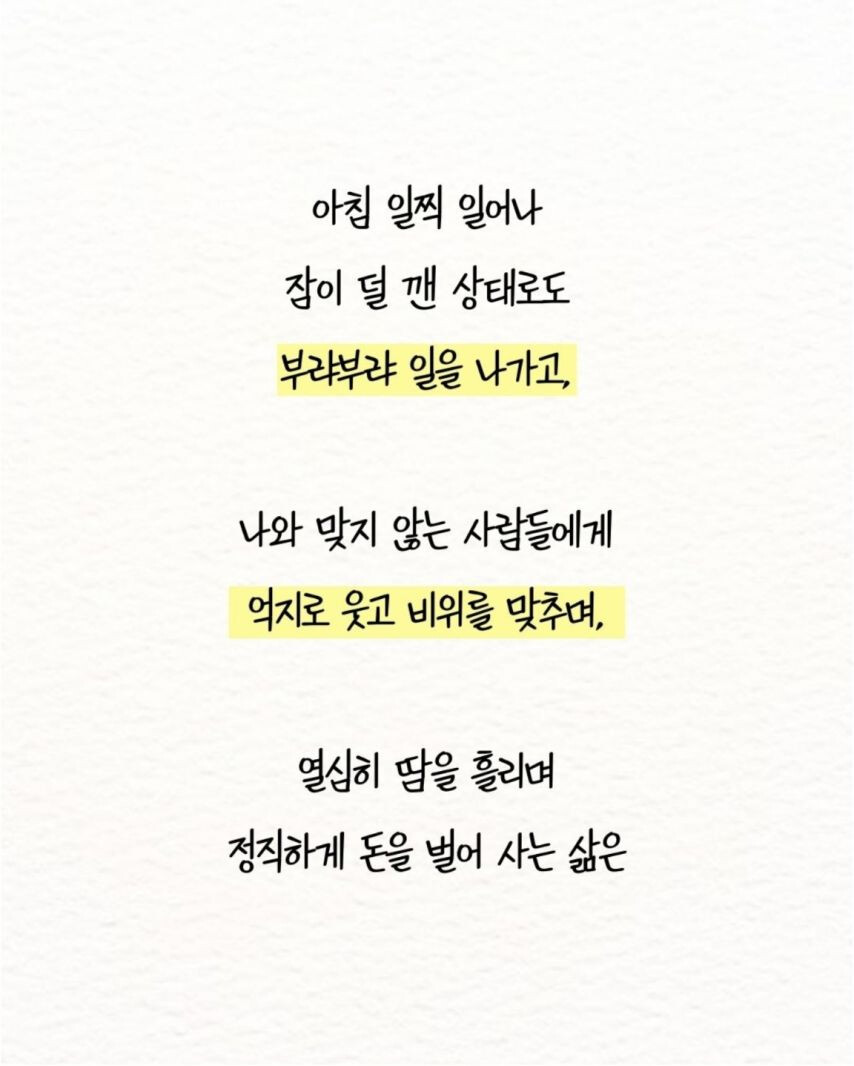 아침 일찍 일어나
잠이 덜 깬 상태로도
부랴부랴 일을 나가고,
나와 맞지 않는 사람들에게
억지로 웃고 비위를 맞추며,
열심히 땀을 흘리며
정직하게 돈을 벌어 사는 삶은